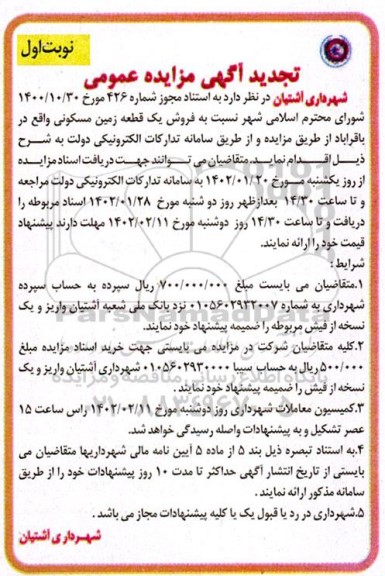 نوبت اول
تجدید آگهی مزایده عمومی
شهرداری آشتیان در نظر دارد به استناد مجوز شماره ۴۲۶ مورخ ۱۴۰۰/۱۰/۳۰
شورای محترم اسلامی شهر نسبت به فروش یک قطعه زمین مسکونی واقع در
باقرآباد از طریق مزایده و از طریق سامانه تدارکات الکترونیکی دولت به شرح
ذیل اقدام نماید. متقاضیان می توانند جهت دریافت اسناد مزایده
از روز یکشنبه مورخ ۱۴۰۲/۰۱/۲۰ به سامانه تدارکات الکترونیکی دولت مراجعه
و تا ساعت ۱۴/۳۰ بعدازظهر روز دو شنبه مورخ ۱۴۰۲/۰۱/۲۸ اسناد مربوطه را
دریافت و تا ساعت ۱۴/۳۰ روز دوشنبه مورخ ۱۴۰۲/۰۲/۱۱ مهلت دارند پیشنهاد
قیمت خود را ارائه نمایند.
شرایط :
۱.متقاضیان می بایست مبلغ ۷۰۰/۰۰۰/۰۰۰ ریال سپرده به حساب سپرده
شهرداری به شماره ۰۱۰۵۶۰۲۹۳۲۰۰۷ نزد بانک ملی شعبه آشتیان واریز و یک
نسخه از فیش مربوطه را ضمیمه پیشنهاد خود نمایند.
۲.کلیه متقاضیان شرکت در مزایده می بایستی جهت خرید اسناد مزایده مبلغ
۵۰۰/۰۰۰ ریال به حساب سیبا ۰۱۰۵۶۰۲۹۳۰۰۰۰ شهرداری آشتیان واریز و یک
نسخه از فیش را ضمیمه پیشنهاد خود نمایند.
۳.کمیسیون معاملات شهرداری روز دوشنبه مورخ ۱۴۰۲/۰۲/۱۱ راس ساعت ۱۵
عصر تشکیل و به پیشنهادات واصله رسیدگی خواهد شد.
۴.به استناد تبصره ذیل بند ۵ از ماده ۵ آیین نامه مالی شهرداریها متقاضیان می
بایستی از تاریخ انتشار آگهی حداکثر تا مدت ۱۰ روز پیشنهادات خود را از طریق
سامانه مذکور ارائه نمایند.
۵.شهرداری در رد یا قبول یک یا کلیه پیشنهادات مجاز می باشد.
شهرداری آشتیان